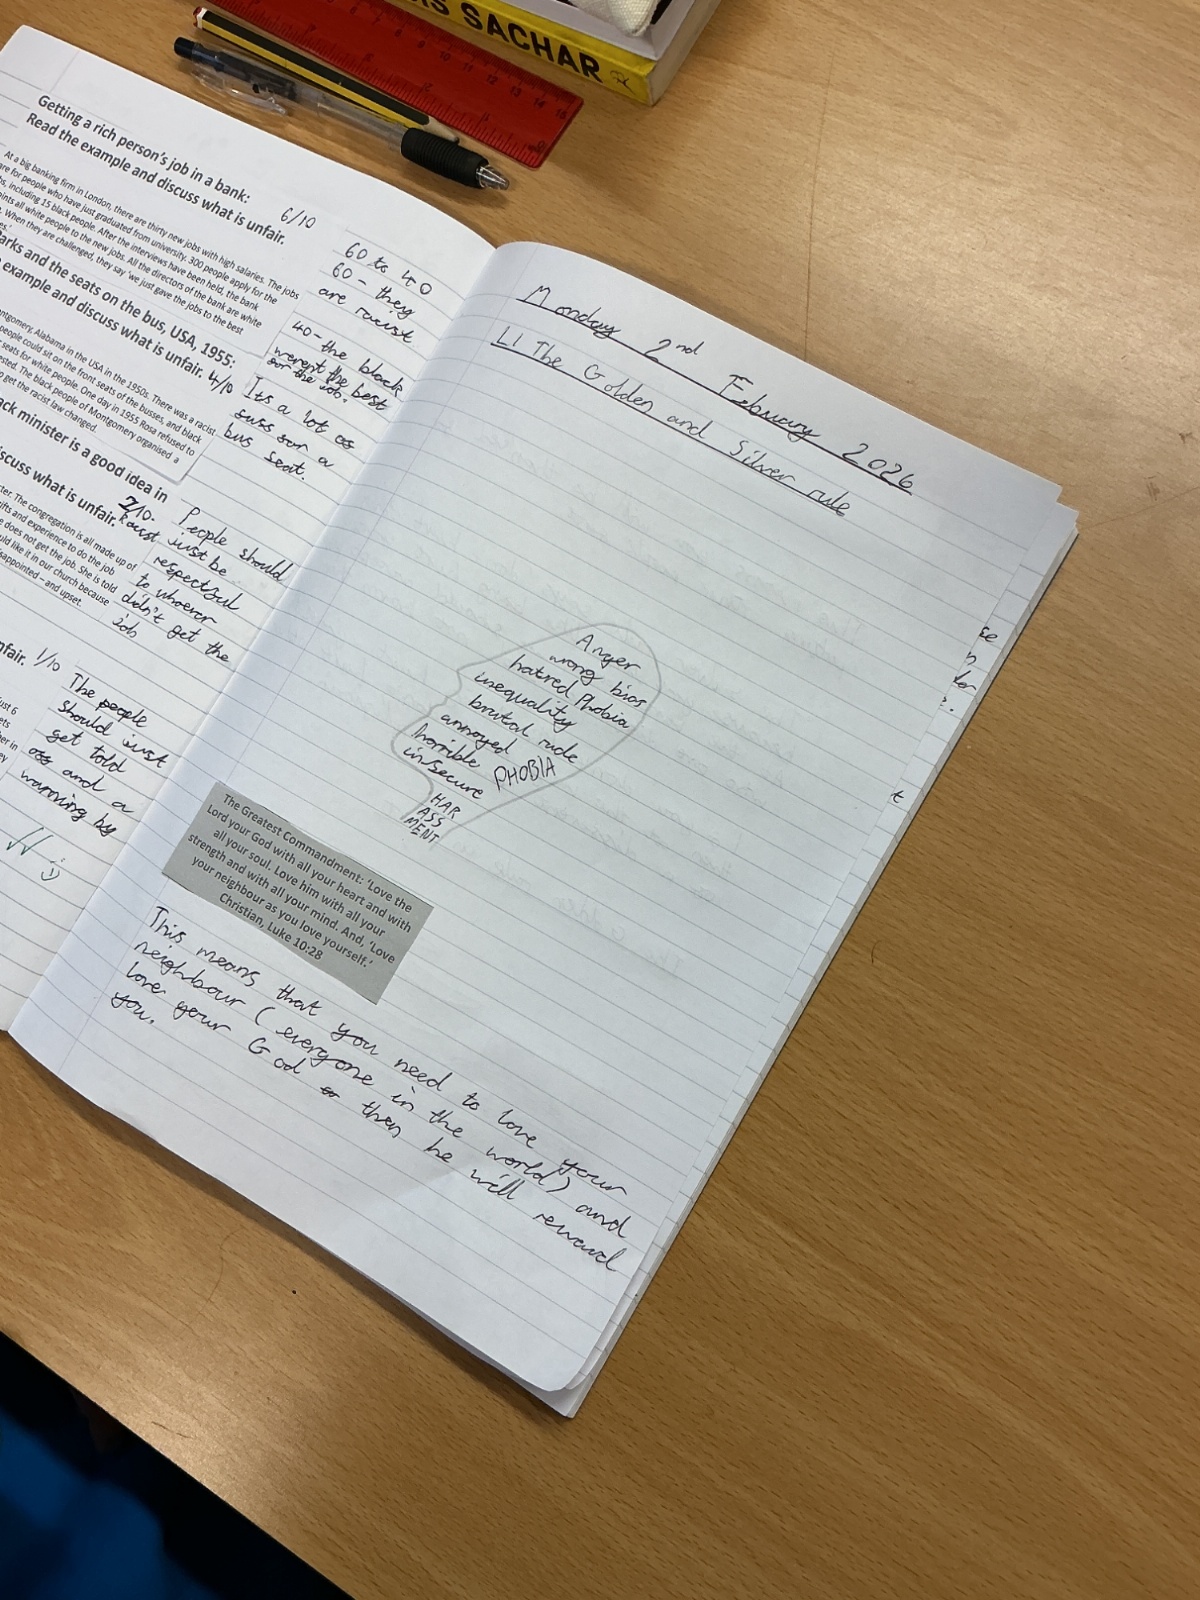 S SACHAR
Getting a rich person's job in a bank:
Read the example and discuss what is unfair.
6/10
At a big banking firm in London, there are thirty new jobs with high salaries. The jobs
are for people who have just graduated from university. 300 people apply for the
including 15 black people. After the interviews have been held, the bank
all white people to the new jobs. All the directors of the bank are white
When they are challenged, they say 'we just gave the jobs to the best
60 to 40
60 - they
are racist
40 - the black
werent the best
for the job.
arks and the seats on the bus, USA, 1955:
example and discuss what is unfair. 4/10
ntgomery, Alabama in the USA in the 1950s. There was a racist
people could sit on the front seats of the busses, and black
seats for white people. One day in 1955 Rosa refused to
ested. The black people of Montgomery organised a
get the racist law changed.
Its a lot of
fuss for a
bus seat.
ack minister is a good idea in
iscuss what is unfair. 7/10-
ter. The congregation is all made up of
ifts and experience to do the job
e does not get the job. She is told
uld like it in our church because
sappointed – and upset.
People should
just be
respectful
to whoever
didn't get the
job
nfair. 1/10
ust 6
ets
her in
ey
The people
should just
get told
off and a
warning by
Monday 2nd February 2026
LI The Golden and Silver rule
Anger
wrong bias
hatred Phobia
inequality
brutal rude
annoyed
horrible PHOBIA
insecure
HAR
ASS
MENT
The Greatest Commandment: 'Love the
Lord your God with all your heart and with
all your soul. Love him with all your
strength and with all your mind. And, 'Love
your neighbour as you love yourself.'
Christian, Luke 10:28
This means that you need to love your
neighbour (everyone in the world) and
love your God then he will reward
you.
se
n
t